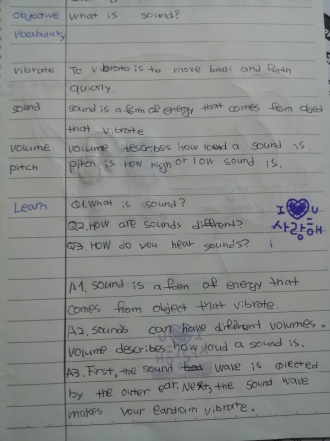 objective what is sound?
vocabulary
vibrate To vibrate is to move back and forth
quickly.
sound sound is a form of energy that comes from object
that vibrate
volume volume describes how loud a sound is.
pitch pitch is how high or low sound is.
Learn Q1.What is sound?
Q2.How are sounds different?
Q3. How do you hear sounds?
I U
사랑해
A1. Sound is a form of energy that
comes from object that vibrate.
A2. sounds can have different volumes.
volume describes how loud a sound is.
A3. First, the sound wave is directed
by the outer ear. Next, the sound wave
makes your eardrum vibrate.